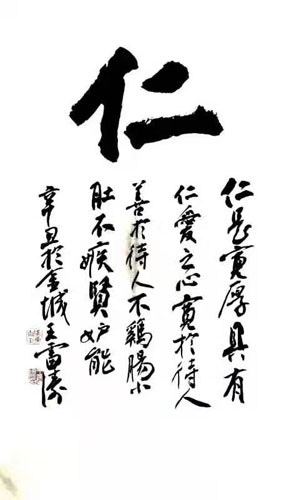 仁
仁是寬厚具有
仁愛之心寬於待人
善於待人不鷄腸小
肚不嫉賢妒能
辛丑於金城王雷濤